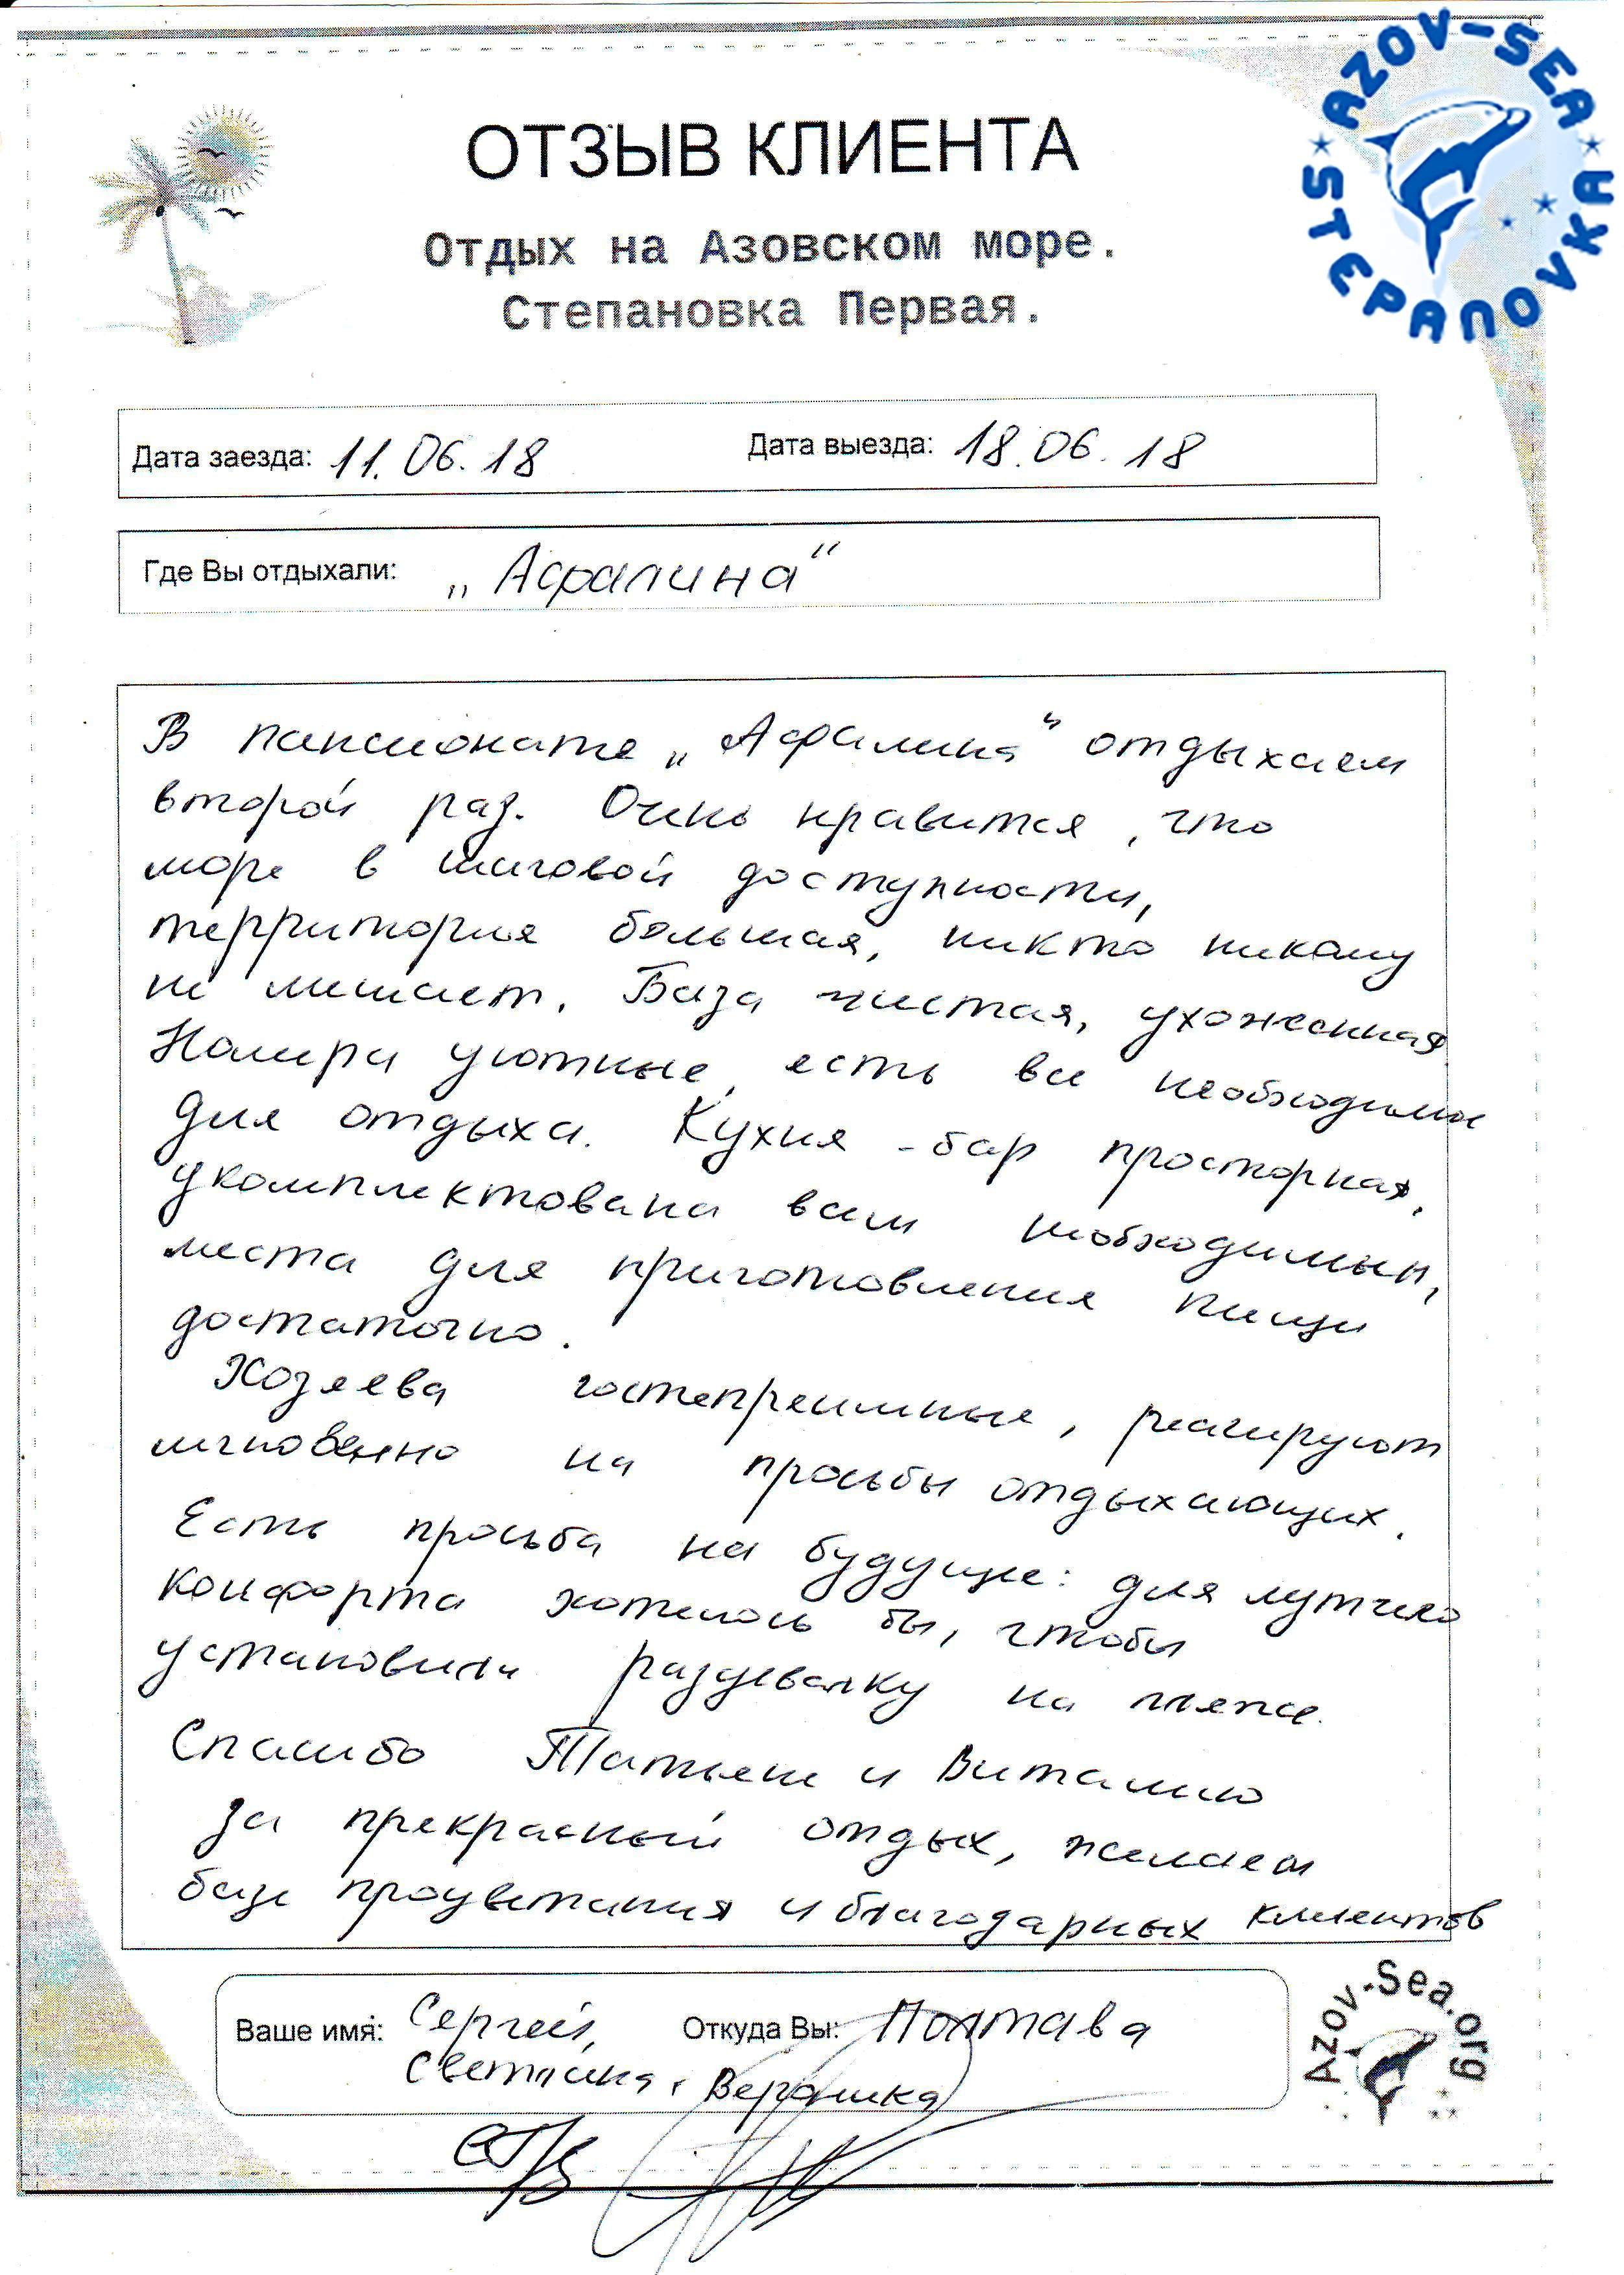 AZOV-SEA
STEPANOVKA
ОТЗЫВ КЛИЕНТА
Отдых на Азовском море.
Степановка Первая.
Дата заезда: 11.06.18 Дата выезда: 18.06.18
Где Вы отдыхали: „Афалина“
В пансионате „Афалина“ отдыхаем
второй раз. Очень нравится, что
море в шаговой доступности,
территория большая, никто никому
не мешает. База чистая, ухоженная.
Номера уютные, есть все необходимое
для отдыха. Кухня-бар просторная,
укомплектована всем необходимым,
места для приготовления пищи
достаточно.
Хозяева гостеприимные, реагируют
мгновенно на просьбы отдыхающих.
Есть просьба на будущее: для лутчего
конфорта хотелось бы, чтобы
установили раздевалку на пляже.
Спасибо Татьяне и Виталию
за прекрасный отдых, желаем
базе процветания и благодарных клиентов
Ваше имя: Сергей, Откуда Вы: Полтава
Светлана, Вероника
Azov-Sea.org